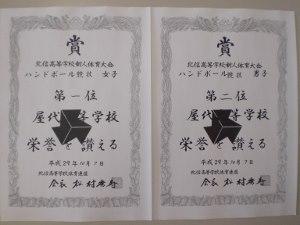 賞
北信高等学校新人体育大会
ハンドボール競技 女子
第一位
屋代高等学校
栄誉を讃える
平成29年10月7日
北信高等学校体育連盟
会長
賞
北信高等学校新人体育大会
ハンドボール競技 男子
第二位
屋代高等学校
栄誉を讃える
平成29年10月7日
北信高等学校体育連盟
会長